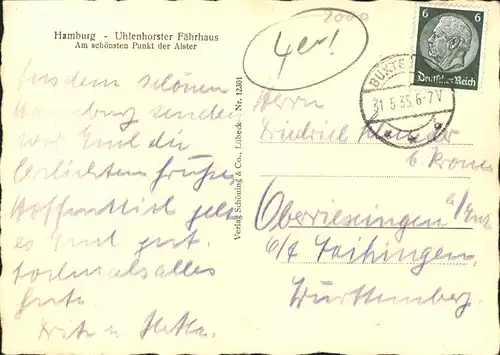 Hamburg - Uhlenhorster Fährhaus
Am schönsten Punkt der Alster
2000
4er!
6 6
Deutsches Reich
31.5.35. 6-7 V
Verlag Schöning & Co., Lübeck - Nr. 12301
Aus dem schönen
Hamburg senden
wir Euch die
herzlichsten Grüße
Hoffentlich geht
es Euch gut.
alles
Gute
Fritz u.
Herrn
Friedrich
b. Krone
Oberriexingen a/Enz
b/ Vaihingen
Württemberg.